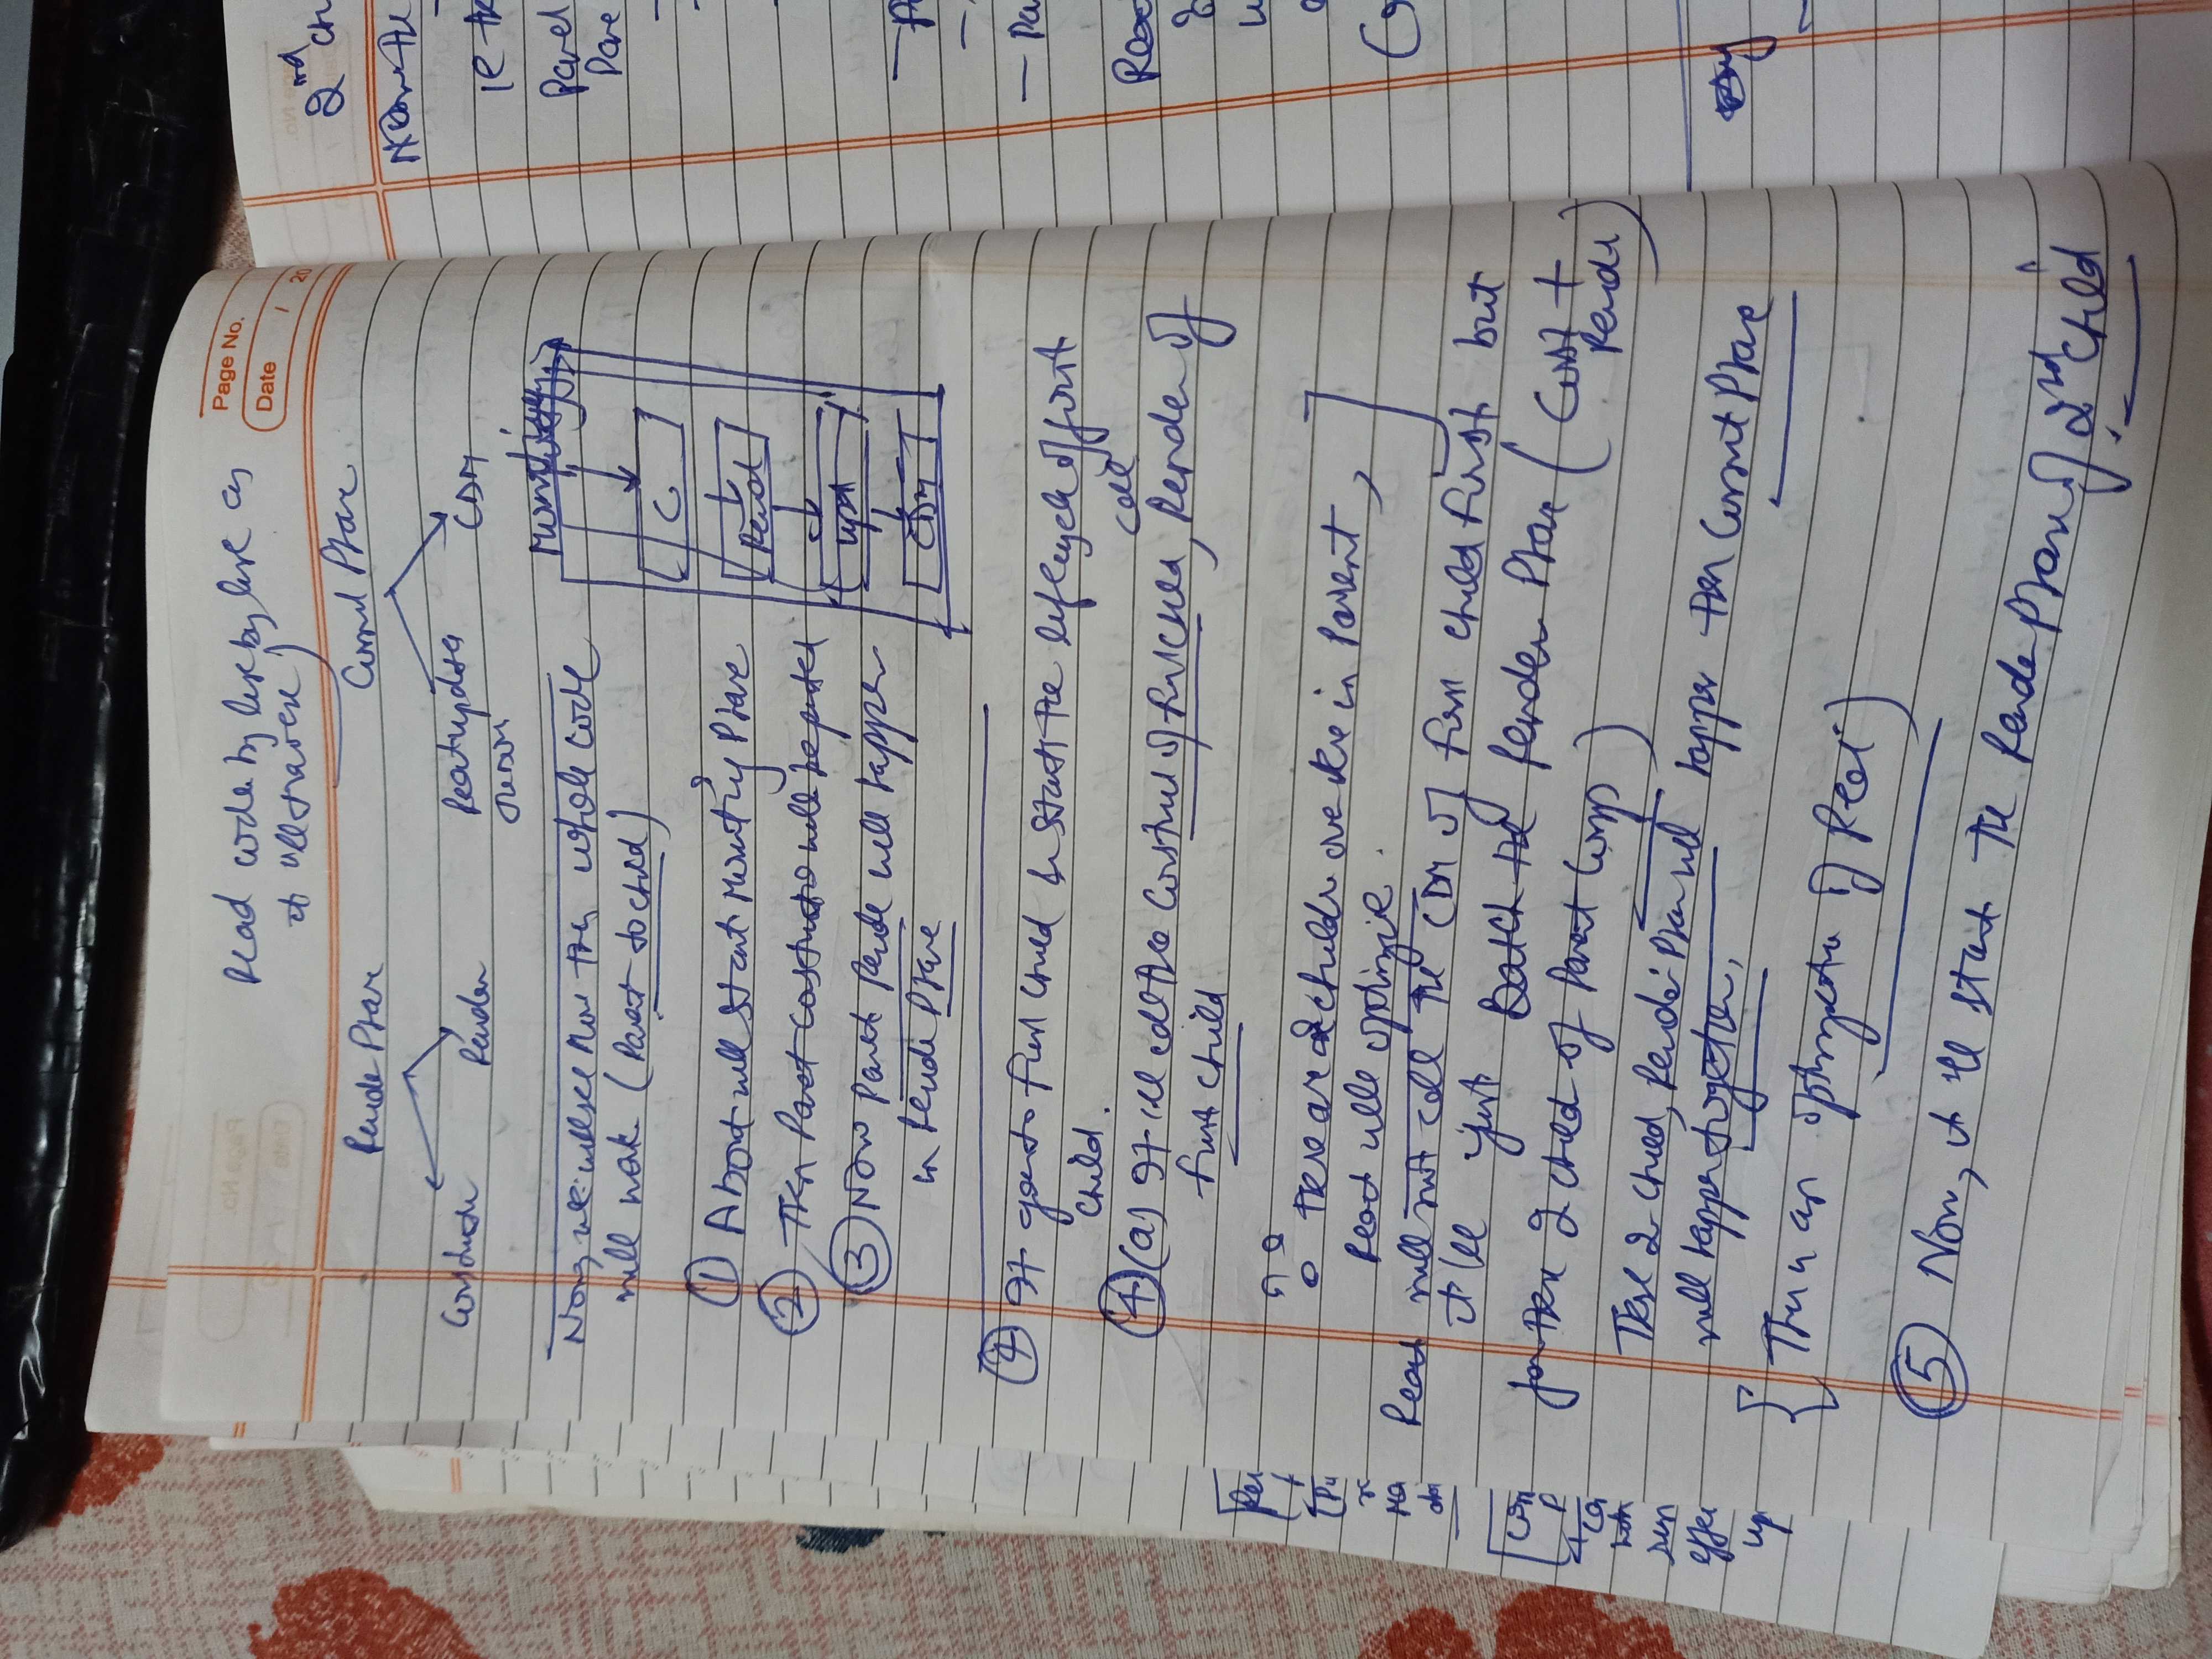 Page No.
Date / 20
Read code by line by line as
it'll traverse
Render Phase Commit Phase
Constructor Render React updates CDM
DOM
Now, we will see how the whole code
will work (Parent to child)
Mounting
C
Render
CDM
① About will start Mounting Phase
② Then Parent constructor will be printed
③ Now Parent Render will happen
in Render Phase
④ It goes to first child & start the lifecycle of first
child.
④ (a) It'll call the Constructor of first child, call Render of
first child
∵ there are 2 children over here in Parent,
React will optimize.
React will not call the CDM of first child first but
it'll just Batch the Render Phase (Const +
Render)
for the 2 child of Parent Comp)
These 2 child, Render Phase will happen then Commit Phase
will happen together,
{ This is an optimization of React
⑤ Now, it'll start the Render Phase of 2nd child
2nd